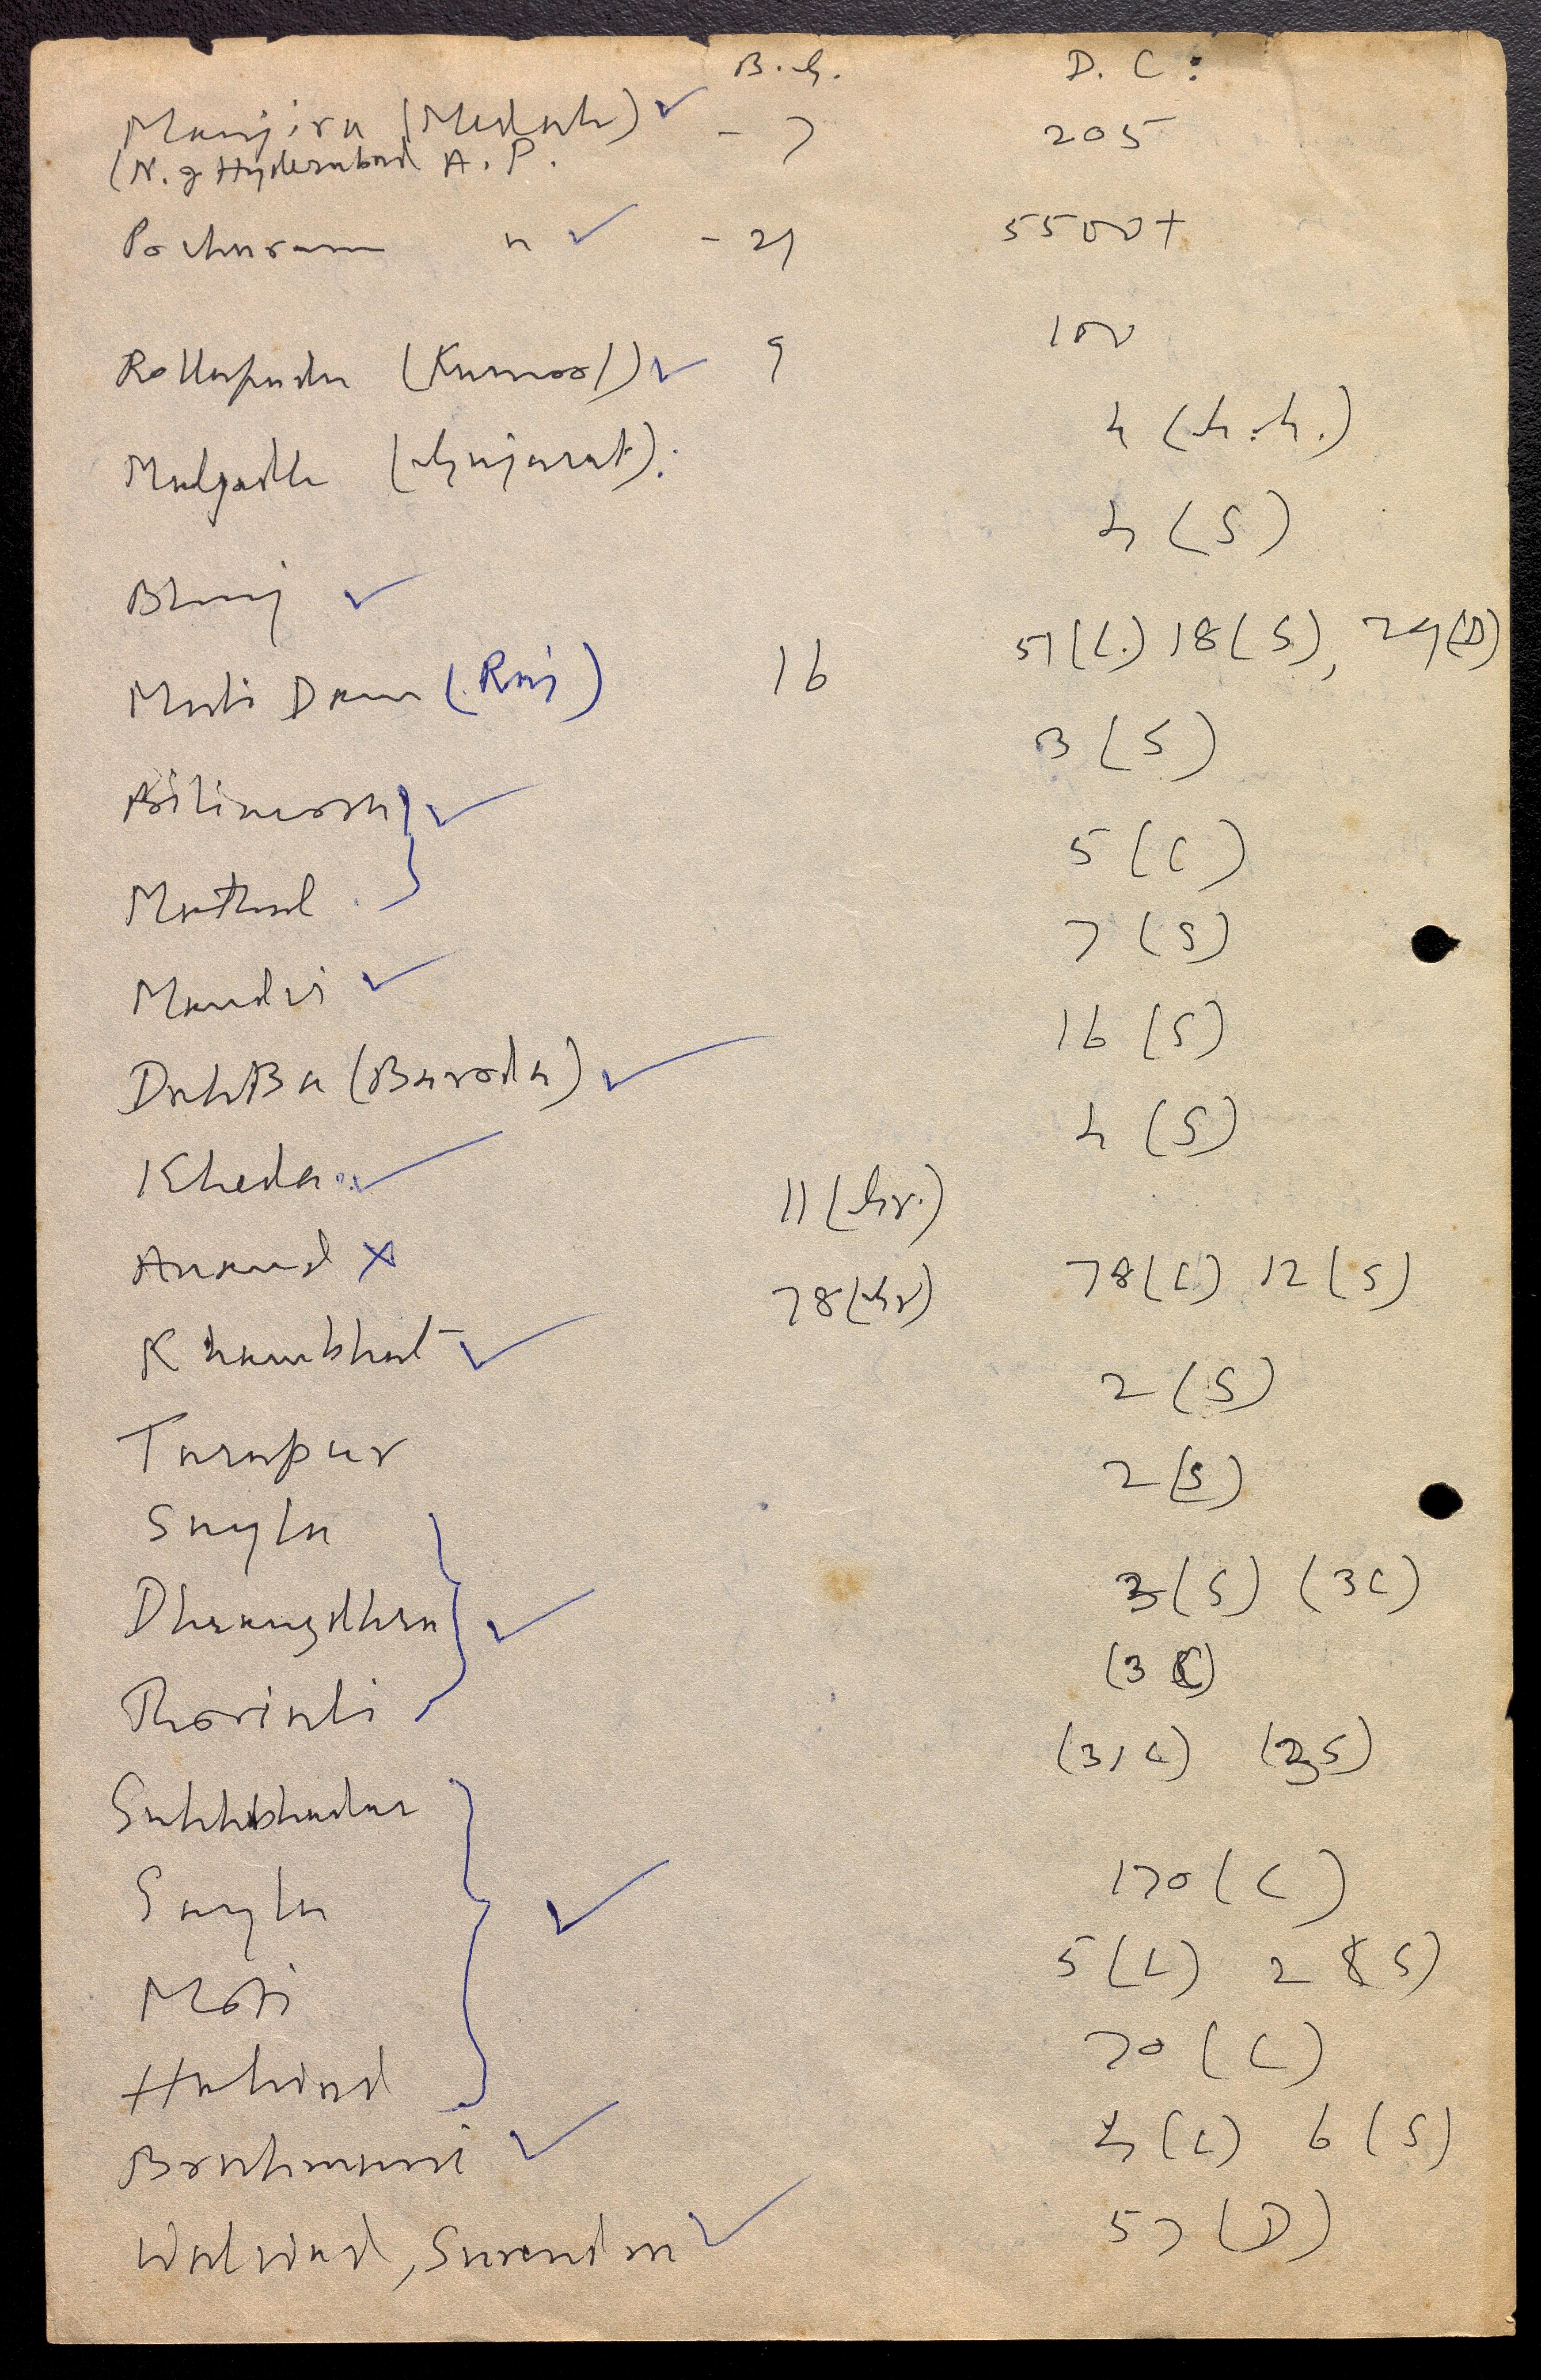 B.G. D.C:
Manjira (Medak) ✓ - 7 205
(N. of Hyderabad A.P.
Pocharam " ✓ - 21 5500+
Rollapadu (Kurnool) ✓ 9 100
(Gujarat). 4 (G.G.)
Bhuj ✓ 4 (S)
Moti Dam (Raj) 16 51(C.) 18(S), 24(D)
Bilimora } ✓ 3 (S)
5 (C)
Mandvi ✓ 7 (S)
(Baroda) ✓ 16 (S)
Kheda ✓ 4 (S)
Anand × 11 (Gr.)
Khambhat ✓ 78 (Gr) 78(C) 12(S)
Tarapur 2 (S)
Sayla 2 (S)
Dhrangdhra } ✓ 3(S) (3C)
Thoriali (3 C)
Sukhbhadar (31C) (3S)
Sayla 170 (C)
Moti } ✓ 5(C) 2 (S)
Halvad 70 (C)
Brahmani ✓ 4(C) 6(S)
, Surendra ✓ 57 (D)